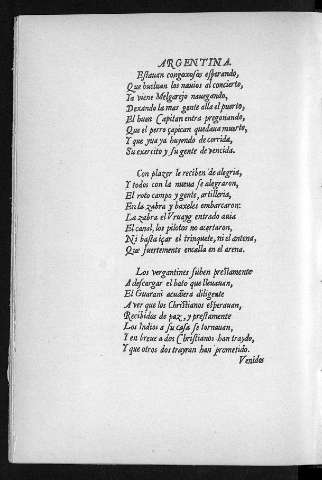 ARGENTINA.
Estauan congoxosos esperando,
Que bueluan los nauios al concierto,
Ya viene Melgarejo nauegando,
Dexando la mas gente alla el puerto,
El buen Capitan entra pregonando,
Que el perro çapican quedaua muerto,
Y que yua ya huyendo de corrida,
Su exercito y su gente de vencida.
Con plazer le reciben de alegria,
Y todos con la nueua se alegraron,
El roto campo y gente, artilleria,
En la zabra y baxeles embarcaron:
La zabra el Vruayg entrado auia
El canal, los pilotos no acertaron,
Ni basta içar el trinquete, ni el antena,
Que fuertemente encalla en el arena.
Los vergantines suben prestamente
A descargar el hato que lleuauan,
El Guarani acudiera diligente
A ver que los Christianos esperauan,
Recibidos de paz, y prestamente
Los Indios a su casa se tornauan,
Y en breue a dos Christianos han traydo,
Y que otros dos trayran han prometido.
Venidos